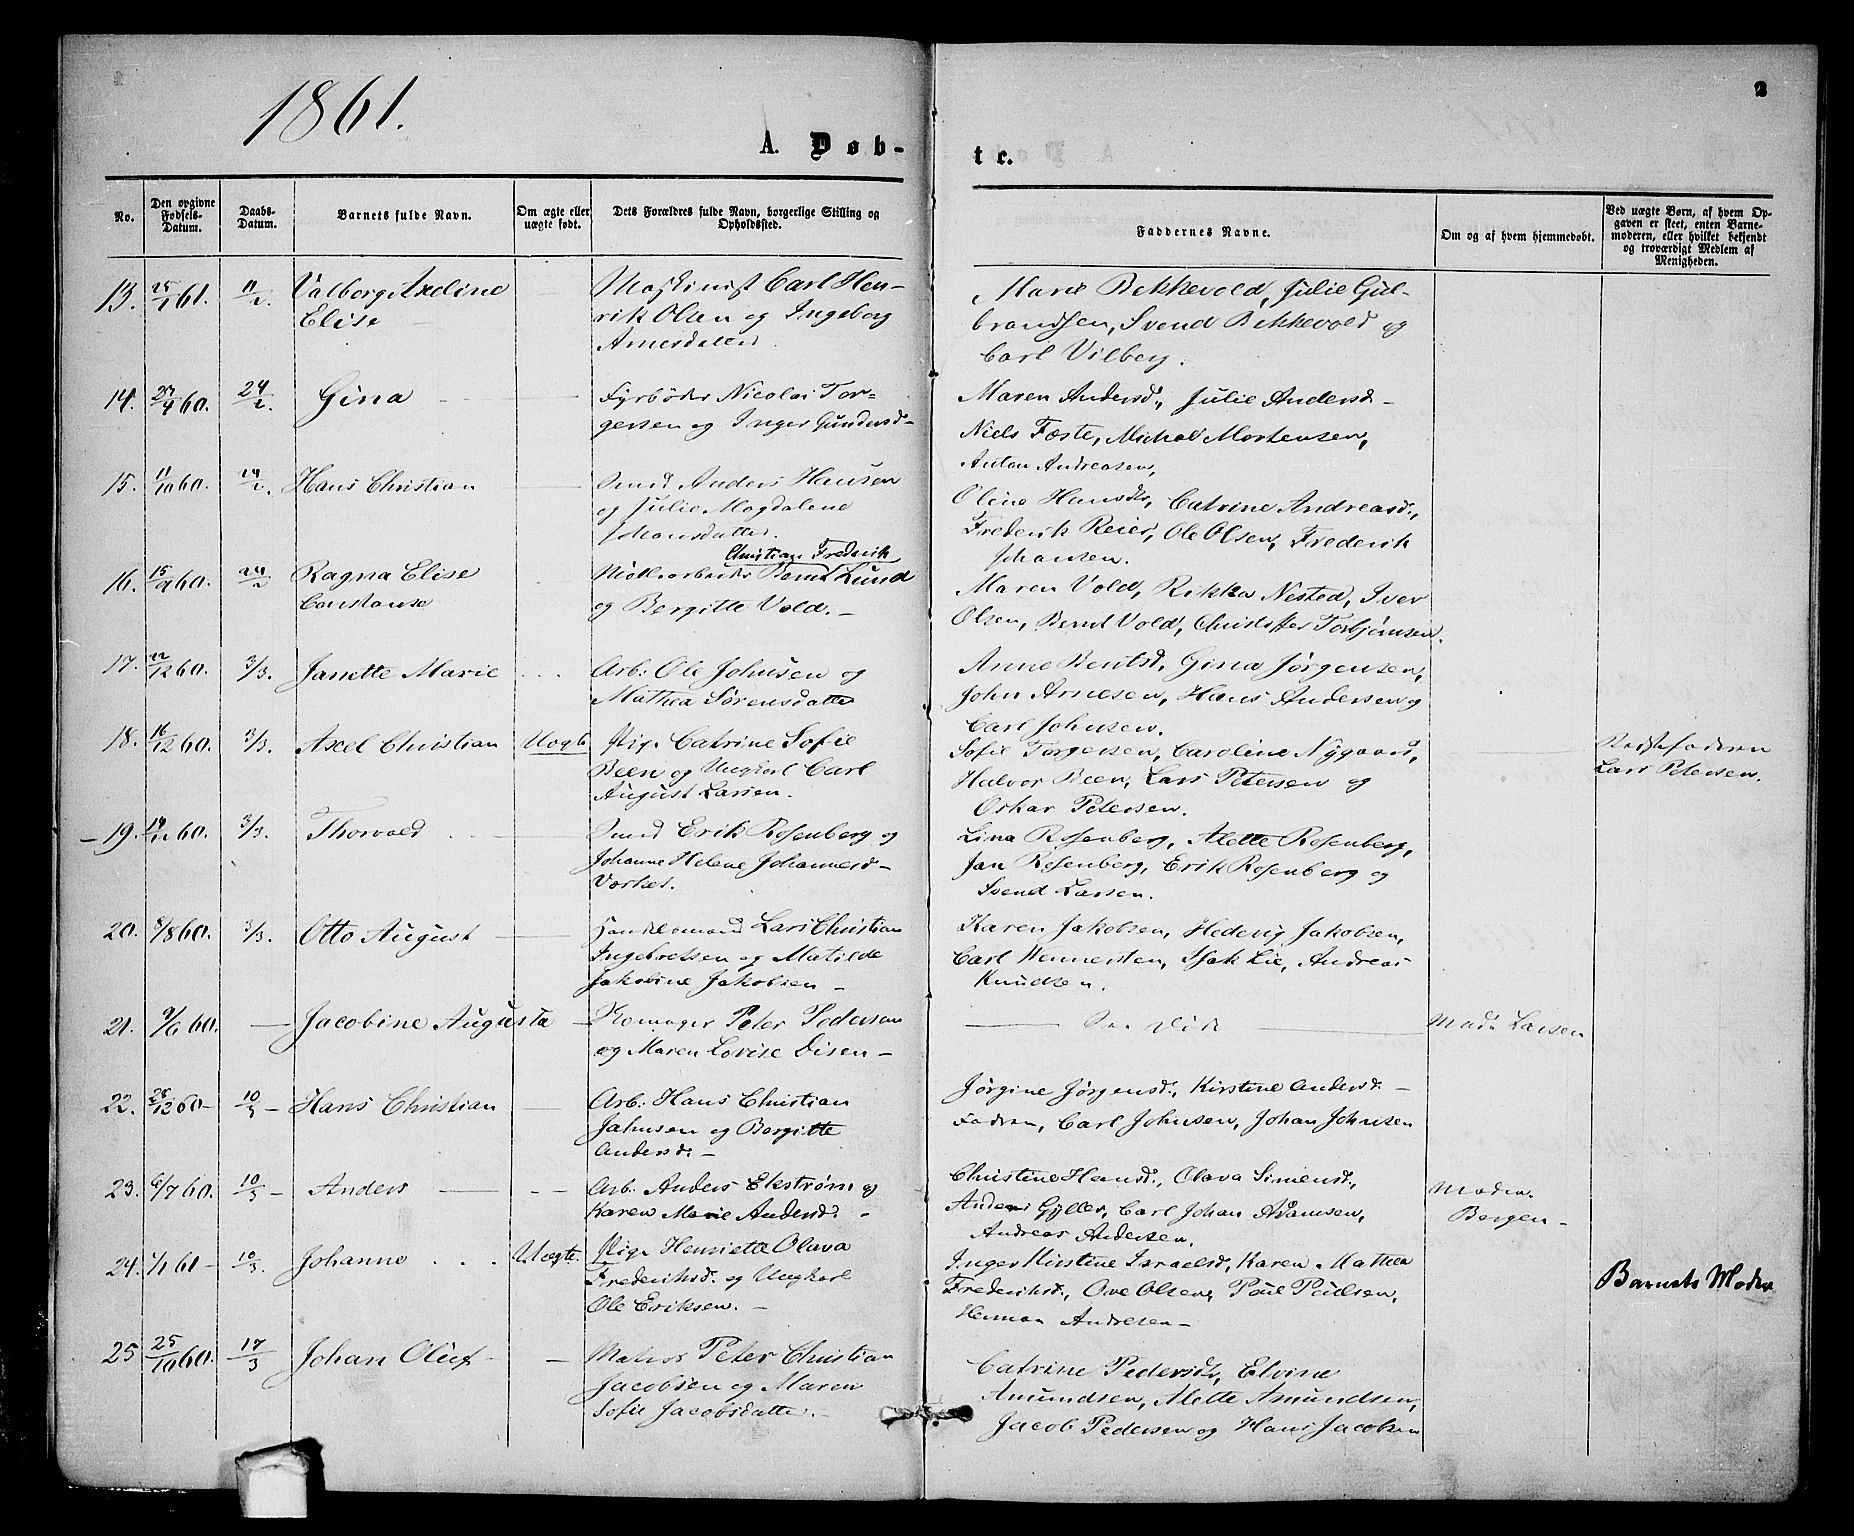 1861.
2
A. Døb-
te.
No.
Den opgivne Fødsels-Datum.
Daabs-Datum.
Barnets fulde Navn.
Om ægte eller uægte født.
Dets Forældres fulde Navn, borgerlige Stilling og Opholdssted.
Faddernes Navne.
Om og af hvem hjemmedøbt.
Ved uægte Børn, af hvem Op-
gaven er skeet, enten Barne-
moderen, eller hvilket bekjendt
og troværdigt Medlem af
Menigheden.
13. 25/1 61. 11/2. Valborg Axeline
Elise
Maskinist Carl Hen-
rik Olsen og Ingeborg
Arnesdatter.
Marie Bekkevold, Julie Gul-
brandsen, Svend Bekkevold og
Carl Vilberg.
14. 27/4 60. 24/2. Gina
Fyrbøder Nicolai Tor-
gersen og Inger Gundersd-
Maren Andersd., Julie Andersd-
Niels Fæste, Michal Mortensen,
Anton Andreasen,
15. 11/10 60. 24/2. Hans Christian
Smed Anders Hansen
og Julie Magdalene
Johansdatter.
Oline Hansdtr, Catrine Andreasd.,
Frederik Reier, Ole Olsen, Frederik
Johansen.
16. 15/9 60. 24/2 Ragna Elise
Constanse
Christian Fredrik
Møllearbeider Bernt Lund
og Bergitte Vold. -
Maren Vold, Rikka Nested, Iver
Olsen, Bernt Vold, Christoffer Torbjørnsen.
17. 22/12 60. 3/3. Janette Marie
Arb: Ole Johnsen og
Mathea Sørensdatter
Anne Bentsd, Gina Jørgensen,
John Arnesen, Hans Andersen og
Carl Johnsen.
18. 16/12 60. 3/3. Axel Christian Uægte
Pige Catrine Sofie
Been og Ungkarl Carl
August Larsen.
Sofie Torgersen, Caroline Nygaard,
Halvor Been, Lars Petersen og
Oskar Petersen.
Lars Petersen.
- 19. 60. 3/3. Thorvald
Smed Erik Rosenberg og
Johanne Helene Johannesd-
Lina Rosenberg, Alette Rosenberg,
Jan Rosenberg, Erik Rosenberg og
Svend Larsen.
20. 8/8 60. 3/3. Otto August
Handelsmand Lars Christian
Ingebretsen og Matilde
Jakobine Jakobsen -
Karen Jakobsen, Hedevig Jakobsen,
Carl Wennersten, Isak Lie, Andreas
Knudsen.
21. 9/6 60. - Jacobine Augusta
Skomager Peter Pedersen
og Maren Lovise Disen -
Mads Larsen
22. 28/12 60 - 10/3 - Hans Christian
Arb: Hans Christian
Johnsen og Bergitte
Andersd: -
Jørgine Jørgensd., Kirstine Andersd. -
Fadren, Carl Johnsen, Johan Johnsen
23. 6/7 60. 10/3 - Anders
Arb: Anders Ekstrøm og
Karen Marie Andersd: -
Christine Hansd., Olava Simensd.,
Anders Gyller, Carl Johan Adamsen,
Andreas Andersen.
Moder.
Bergen -
24. 1/1 61 - 10/3. Johanne Uægte.
Pige Henriette Olava
Frederiksd. og Ungkarl
Ole Eriksen. -
Inger Kirstine Israelsd, Karen Mathea
Frederiksd., Ove Olsen, Poul Poulsen,
Herman Andresen -
Barnets Moder
25 25/10 60. 17/3 Johan Oluf
Matros Peter Christian
Jacobsen og Maren
Sofie Jacobsdatter. -
Catrine Pedersdtr, Elvine
Amundsen, Alette Amundsen,
Jacob Pedersen og Hans Jacobsen